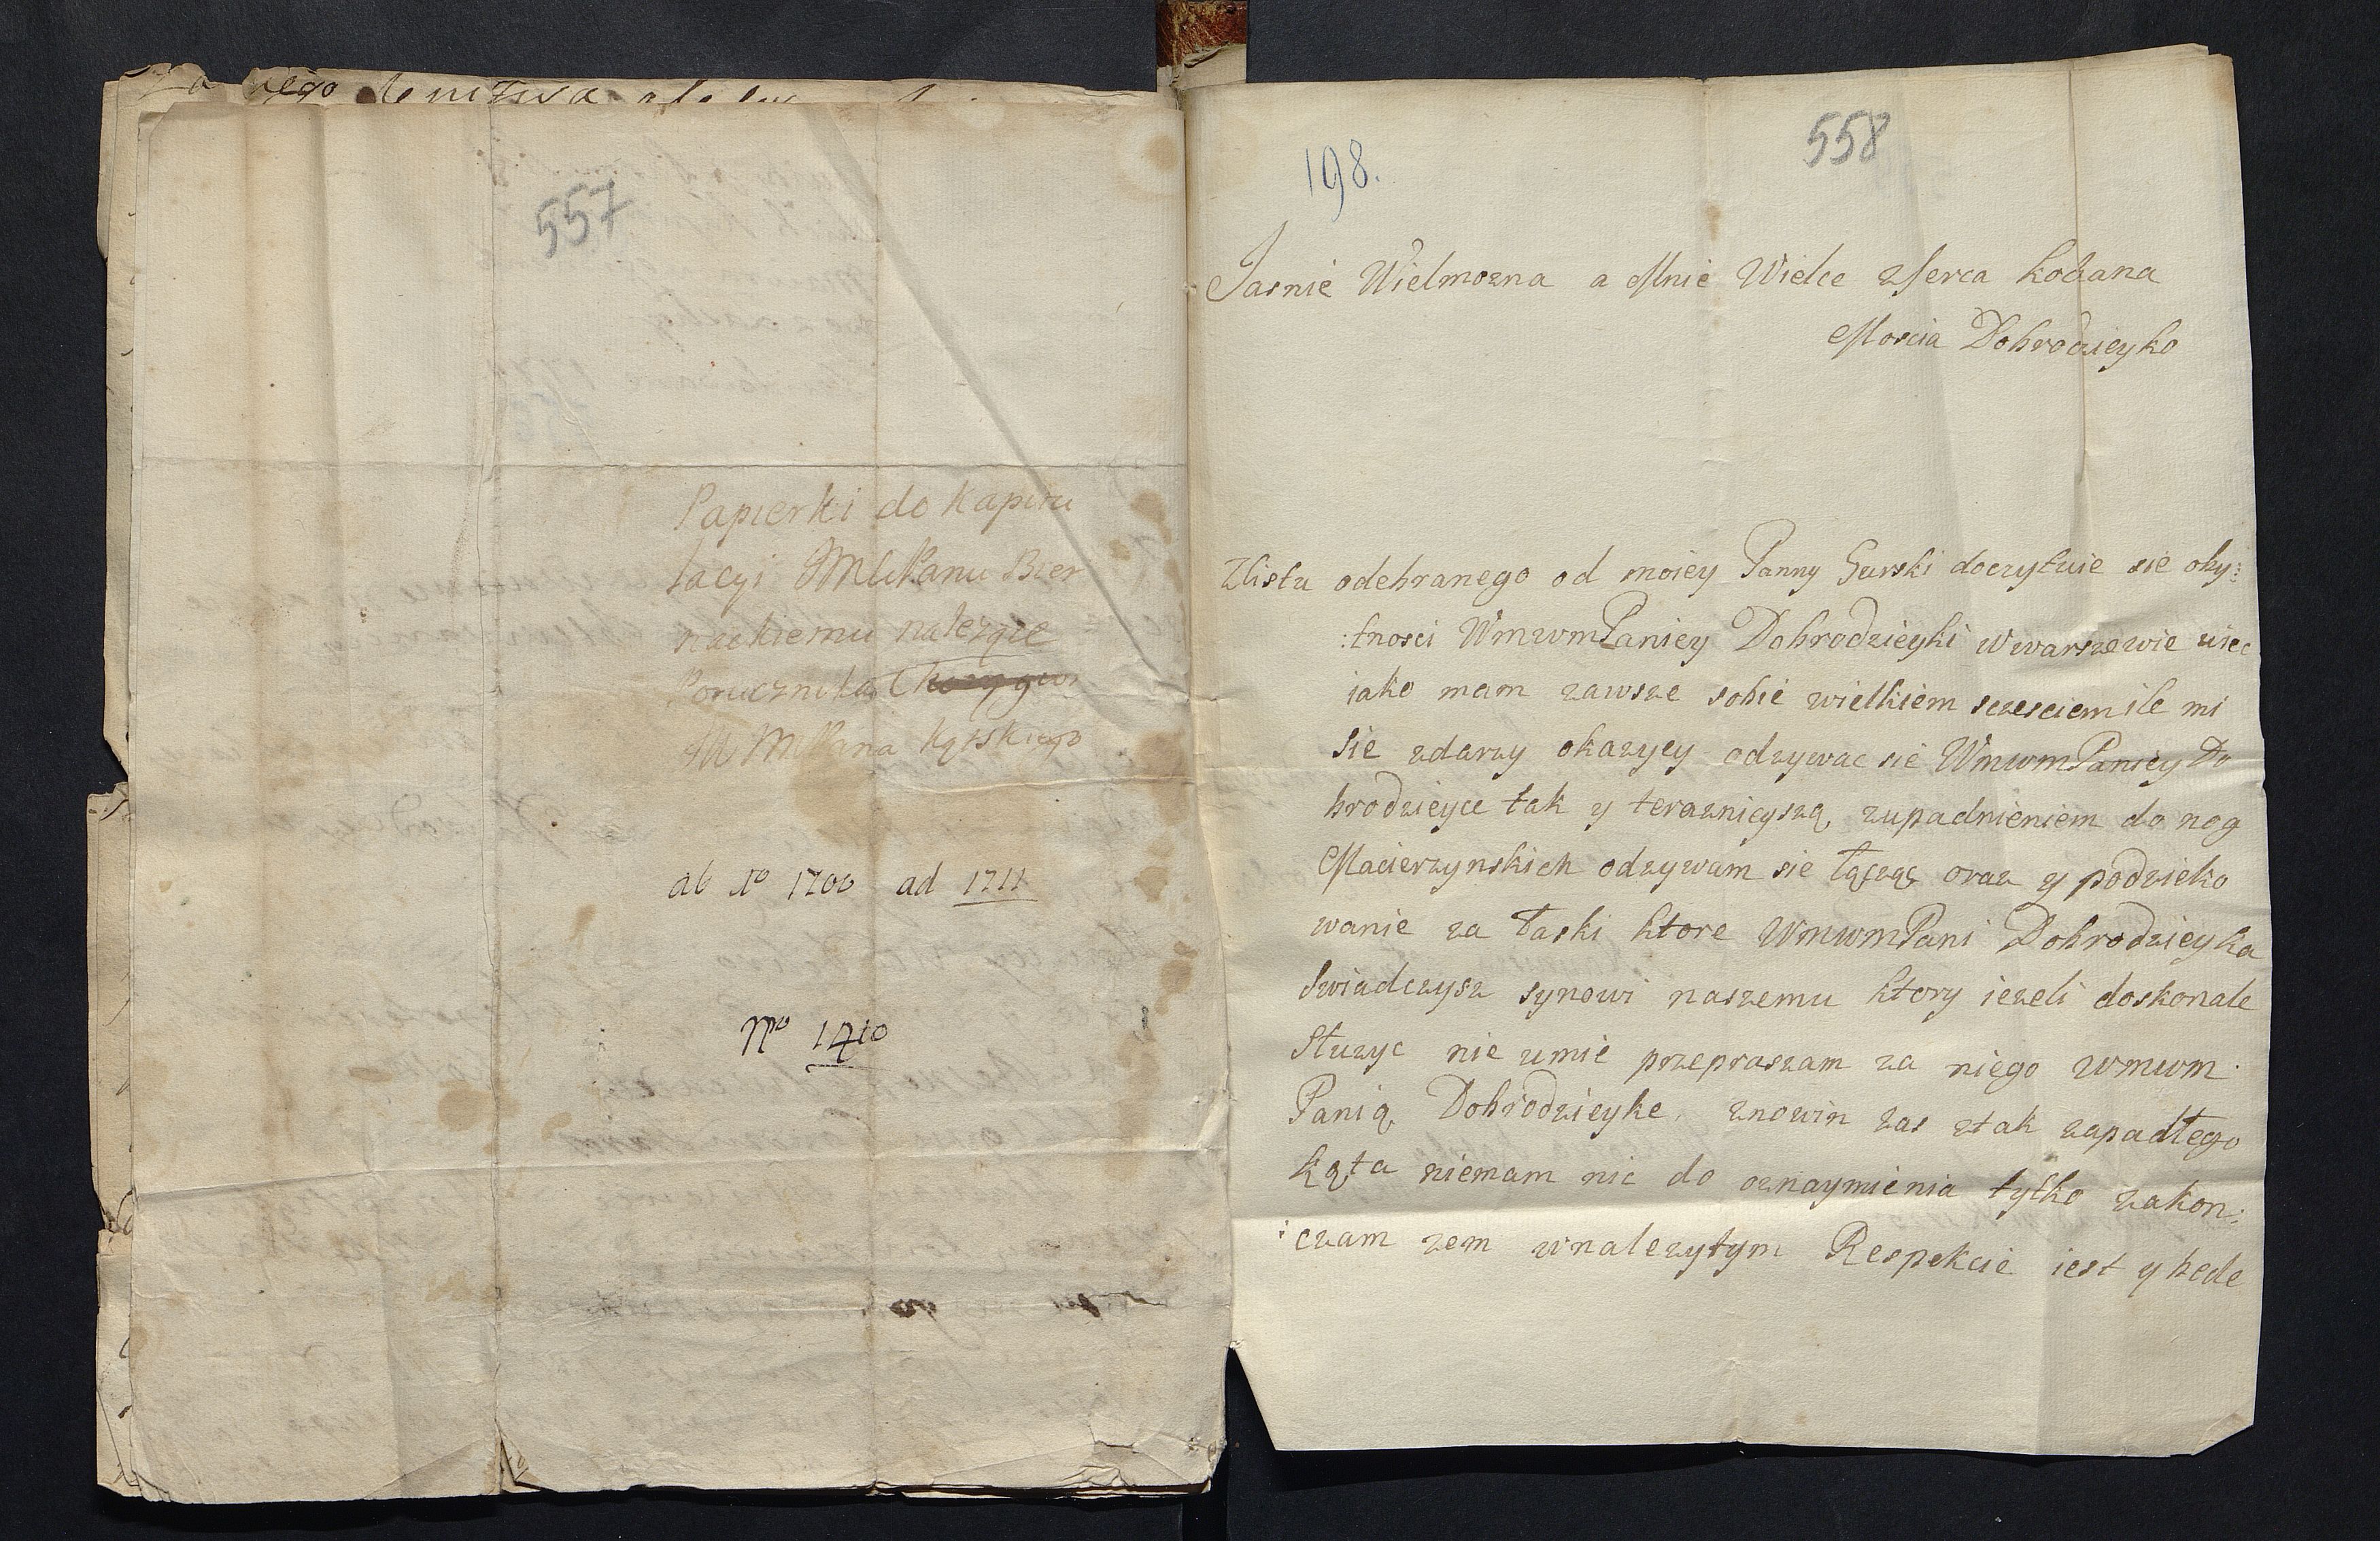 557
Papierki do kapitu
lacyi JMMPanu Bier
nackiemu należące
Porucznika
JW MMPana Kąskiego
ab No 1700 ad 1711
No 1410
198.
558
Jasnie Wielmozna a Mnie Wielce zserca kohana
Moscia Dobrodzieyko
Zlistu odebranego od moiey Panny Gurski doczytuie sie oby:
:tnosci WmwmPaniey Dobrodzieyki w warszewie wiec
iako mam zawsze sobie wielkiem sczesciem ile mi
sie zdarzy okazyey odzywac sie WmwmPaniey Do
brodzieyce tak y teraznieyszą zupadnieniem do nog
Macierzynskich odzywam sie łącząc oraz y podzieko
wanie za łaski ktore WmwmPani Dobrodzieyka
swiadczysz synowi naszemu ktory iezeli doskonale
służyc nie umie przepraszam za niego wmwm
Panią Dobrodzieyke. znowin zas ztak zapadłego
kąta niemam nic do oznaymienia tylko zakon:
:czam zem wnalezytym Respekcie iest y bede